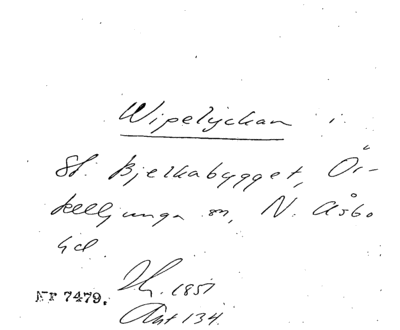 Wipelyckan i
St. Bjelkabygget, Ör-
kelljunga sn, N. Åsbo
hd.
1851
Nr 7479.
Akt 134.